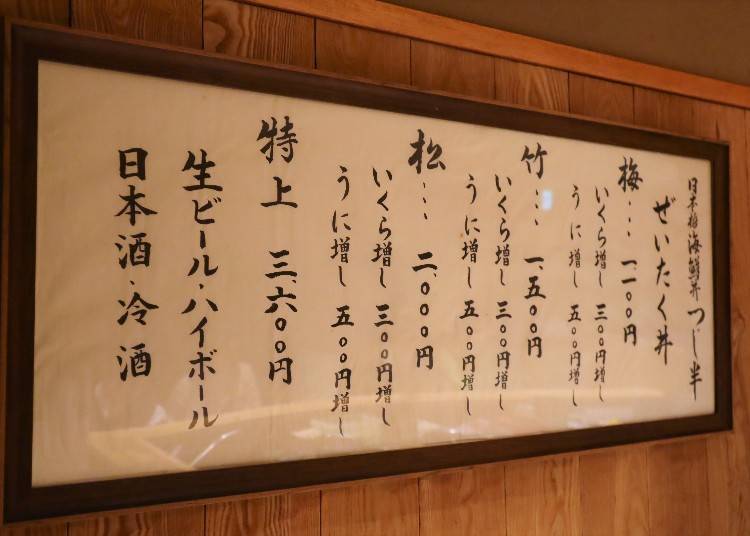 日本橋海鮮丼 つじ半
ぜいたく丼
梅… 一、一〇〇円
いくら増し 三〇〇円増し
うに増し 五〇〇円増し
竹… 一、五〇〇円
いくら増し 三〇〇円増し
うに増し 五〇〇円増し
松… 二、〇〇〇円
いくら増し 三〇〇円増し
うに増し 五〇〇円増し
特上 三、六〇〇円
生ビール・ハイボール
日本酒・冷酒